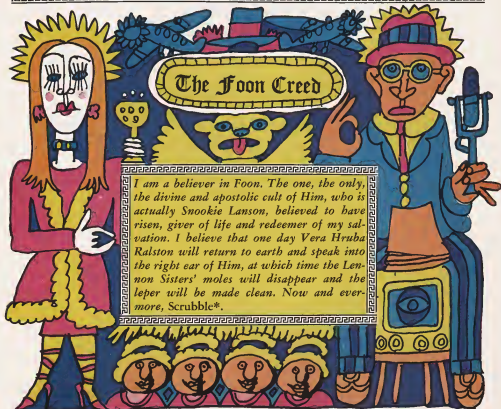 The Foon Creed
I am a believer in Foon. The one, the only,
the divine and apostolic cult of Him, who is
actually Snookie Lanson, believed to have
risen, giver of life and redeemer of my sal-
vation. I believe that one day Vera Hruba
Ralston will return to earth and speak into
the right ear of Him, at which time the Len-
non Sisters' moles will disappear and the
leper will be made clean. Now and ever-
more, Scrubble*.